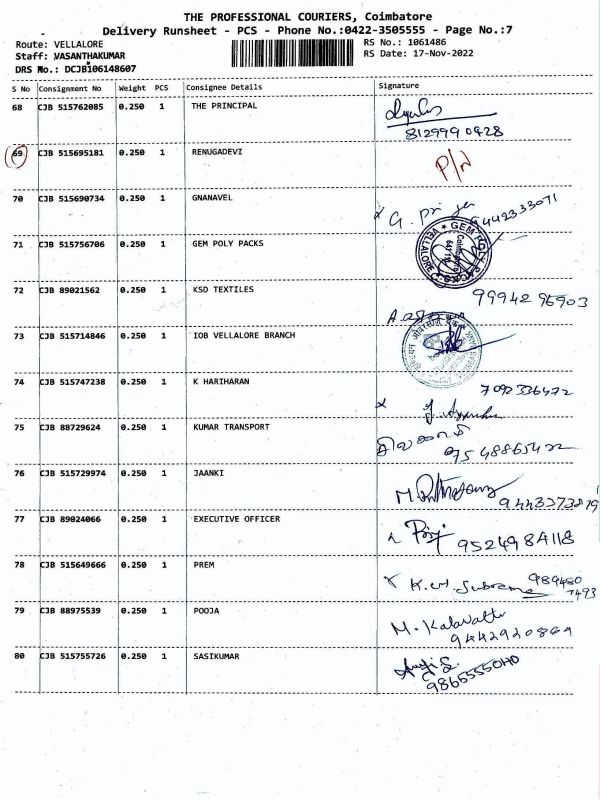 THE PROFESSIONAL COURIERS, Coimbatore
Delivery Runsheet - PCS - Phone No.:0422-3505555 - Page No.:7
Route: VELLALORE
RS No.: 1061486
Staff: VASANTHAKUMAR
RS Date: 17-Nov-2022
DRS No.: DCJB106148607
S No Consignment No Weight PCS Consignee Details Signature
68 CJB 515762085 0.250 1 THE PRINCIPAL
8129990928
69 CJB 515695181 0.250 1 RENUGADEVI P/N
70 CJB 515690734 0.250 1 GNANAVEL
9442333071
71 CJB 515756706 0.250 1 GEM POLY PACKS
VELLALORE ★ GEM POLY PACKS
72 CJB 89021562 0.250 1 KSD TEXTILES
9994296903
73 CJB 515714846 0.250 1 IOB VELLALORE BRANCH
74 CJB 515747238 0.250 1 K HARIHARAN
75 CJB 88729624 0.250 1 KUMAR TRANSPORT
76 CJB 515729974 0.250 1 JAANKI
77 CJB 89024066 0.250 1 EXECUTIVE OFFICER
9524984118
78 CJB 515649666 0.250 1 PREM
989480
7493
79 CJB 88975539 0.250 1 POOJA
M. Kalavathi
80 CJB 515755726 0.250 1 SASIKUMAR